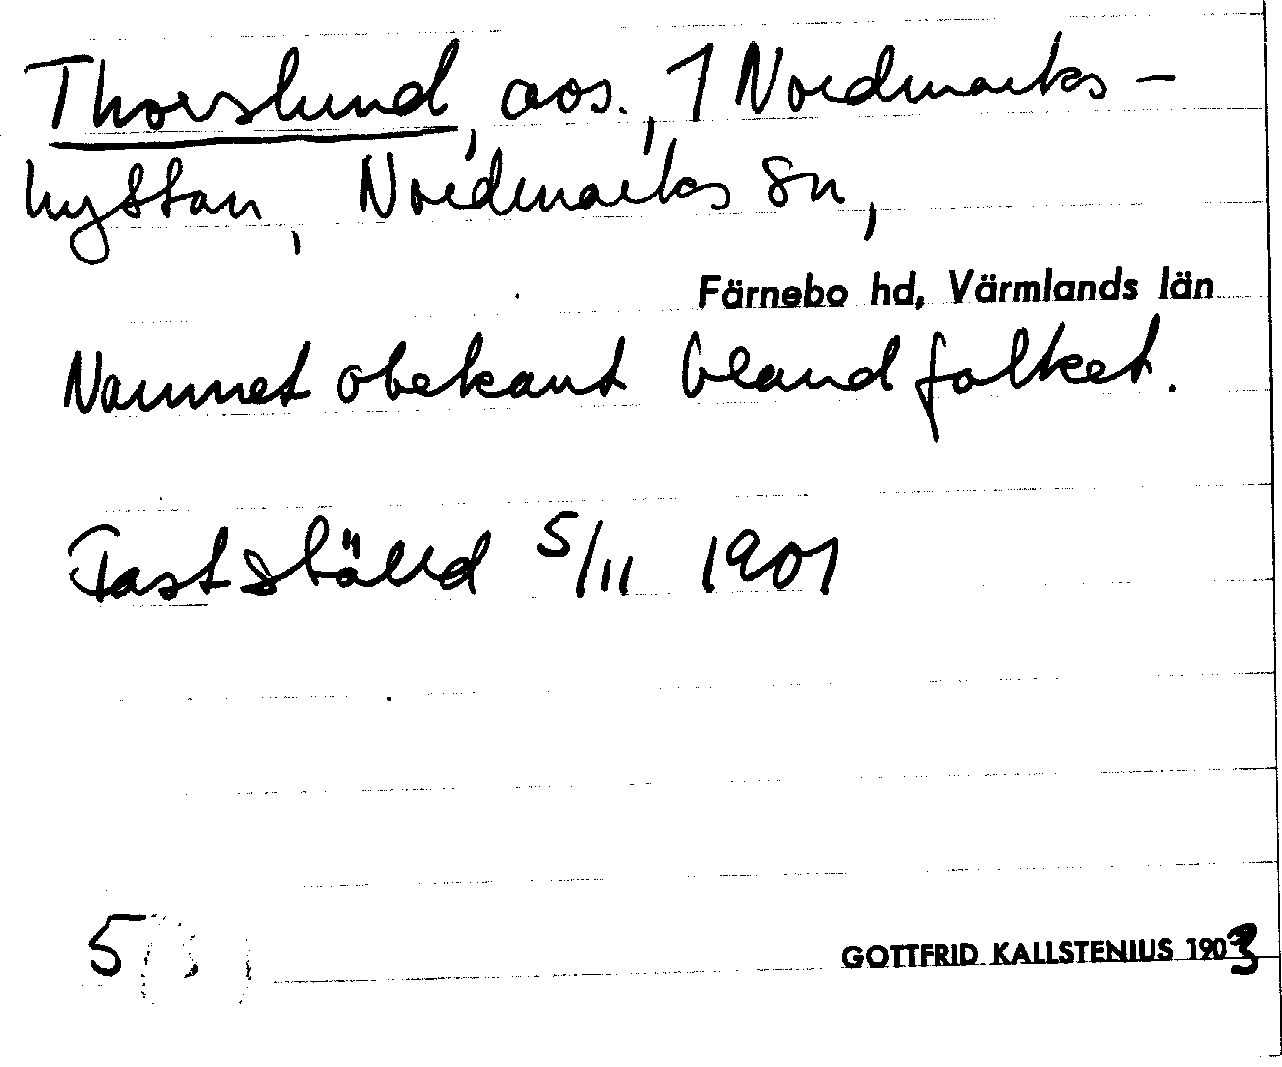 Thorslund, aos., 1 Nordmarks-
hyttan, Nordmarks sn,
Färnebo hd, Värmlands län
Namnet obekant bland folket.
Fastställd 5/11 1901
5
GOTTFRID KALLSTENIUS 1903